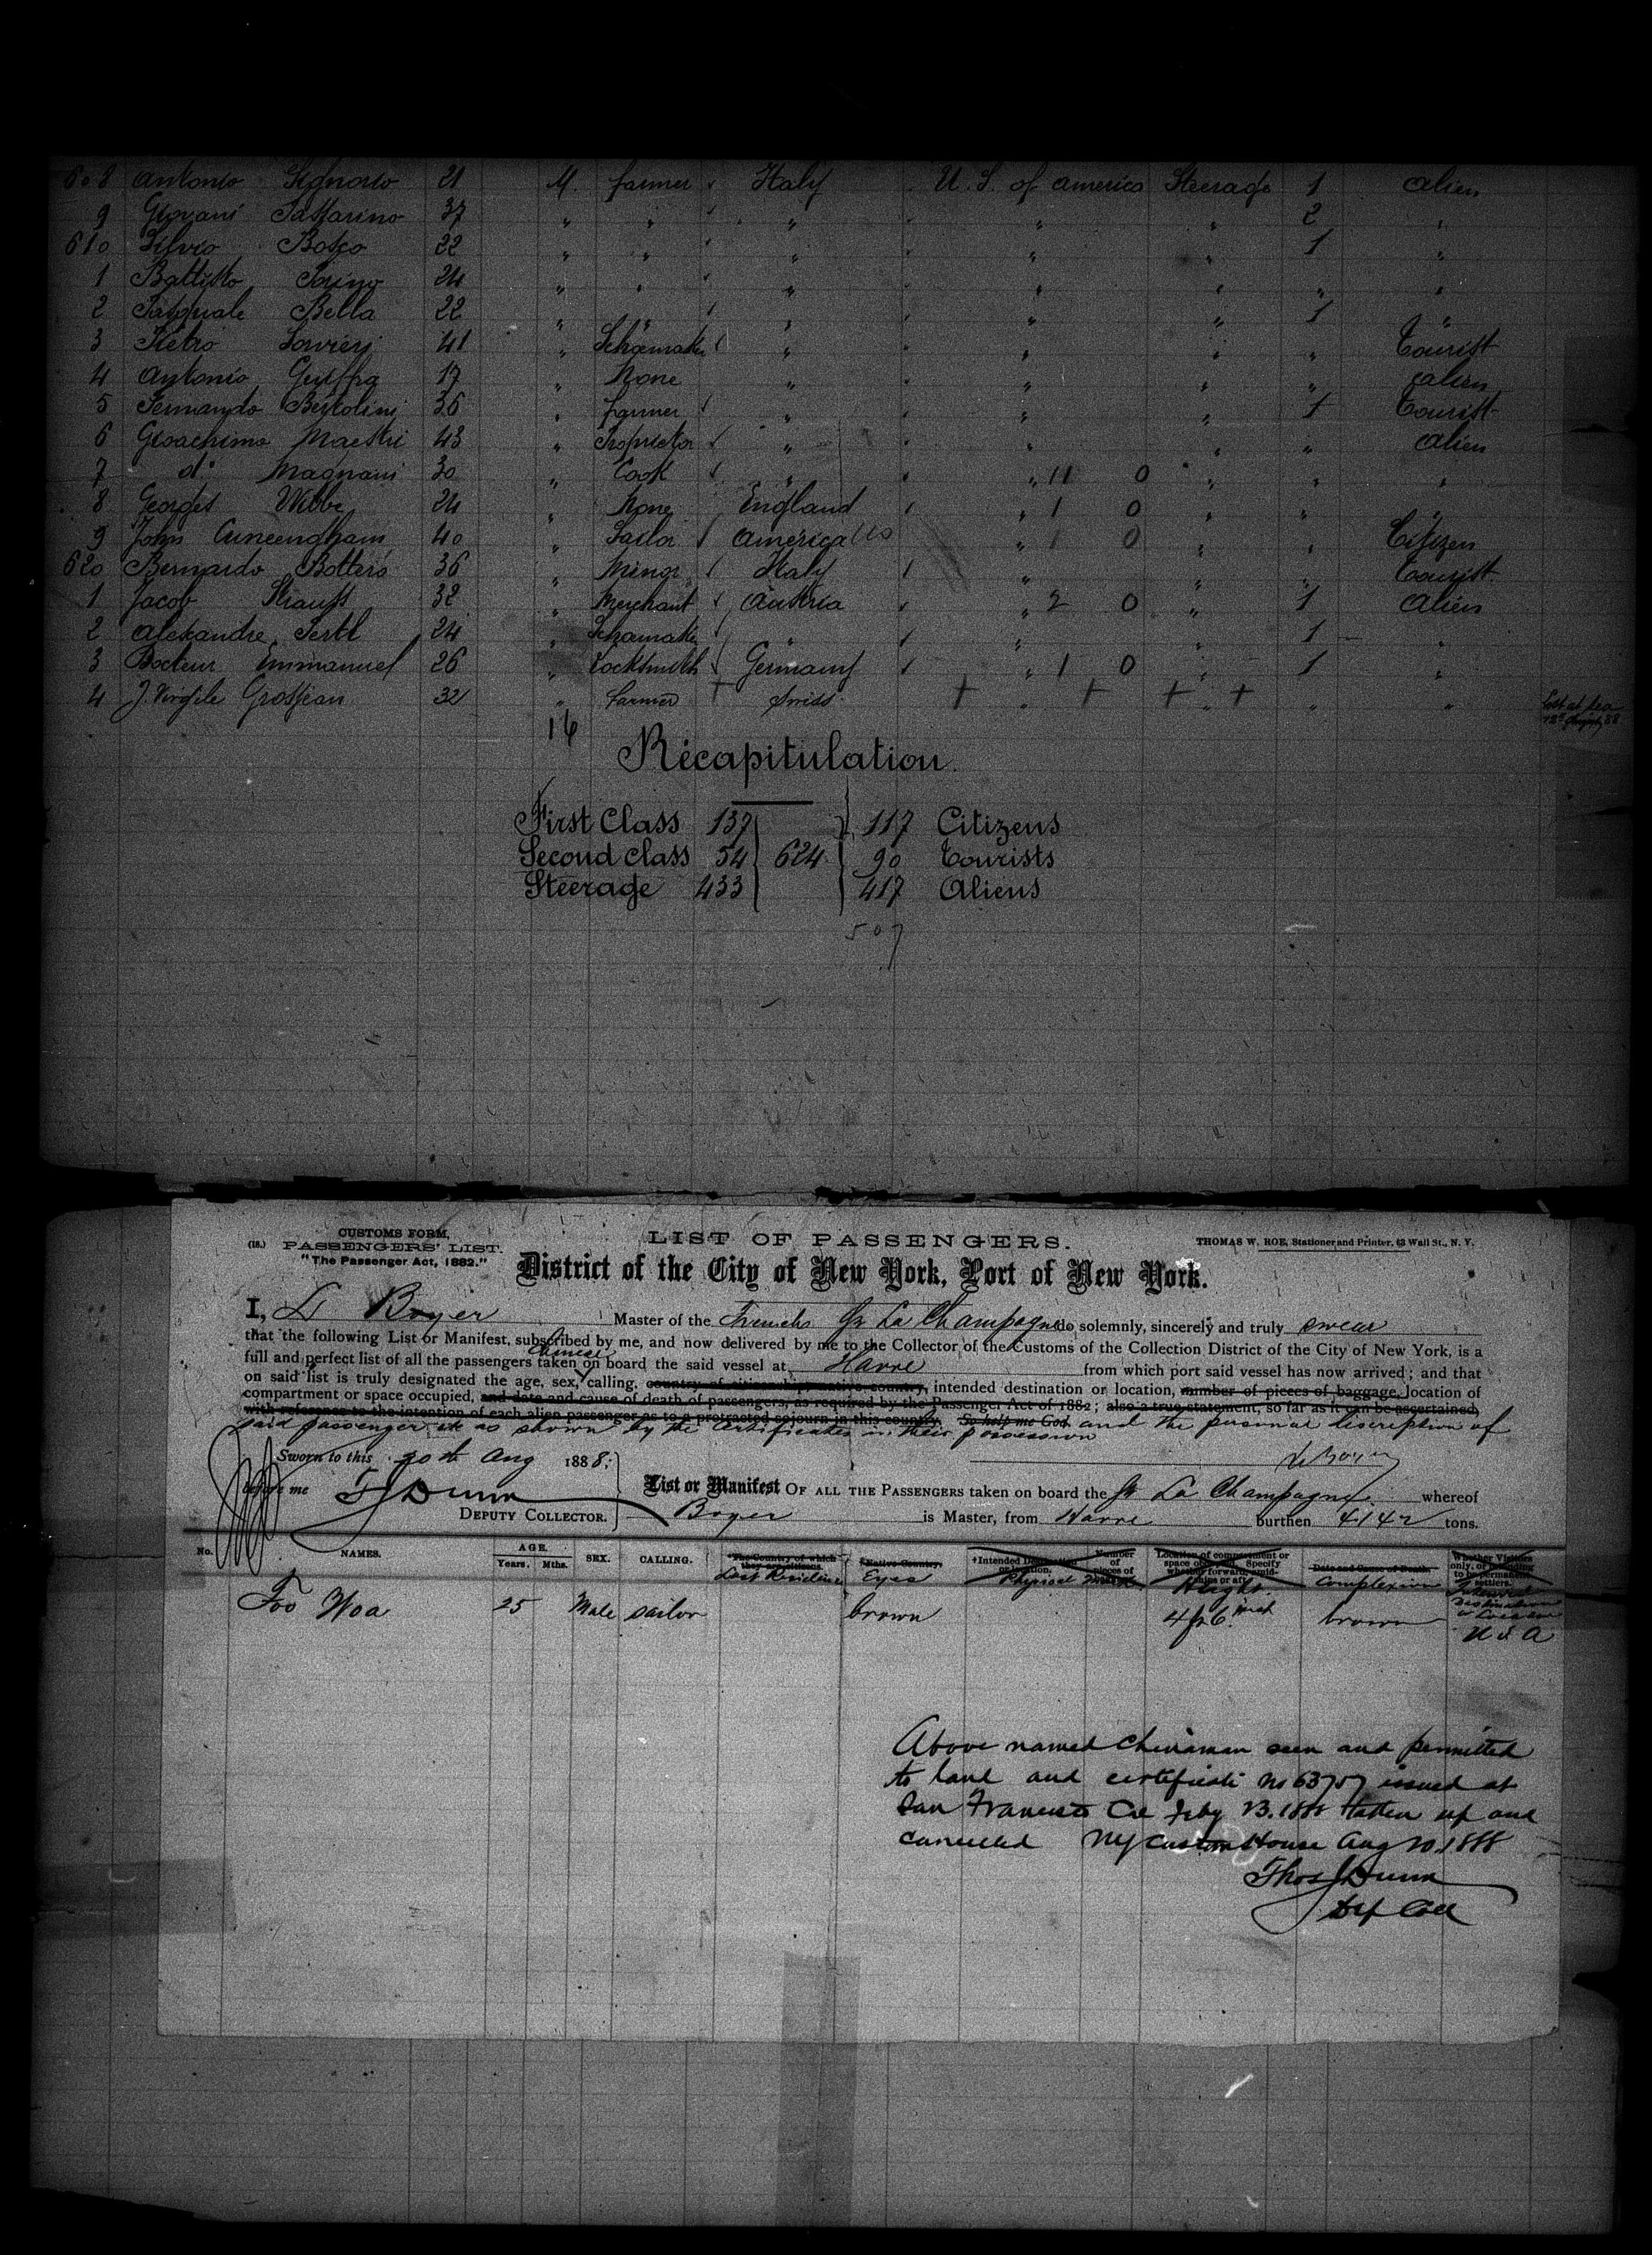 608 Antonio Signorio 21 M. farmer Italy U. S. of america Steerage 1 alien
9 Giovani 37 " " " " " 2 "
610 Silvio Bosco 22 " " " " " 1 "
1 Battisto 24 " " " " " " "
2 Pasquale Bella 22 " " " " " 1 "
3 Pietro 41 " Schoemaker " " " " Tourist
4 Antonio 17 " None " " " " alien
5 Fernando Bertolini 36 " farmer " " " 1 Tourist
6 Gioachimo Maestri 43 " Proprietor " " " " alien
7 do Magnani 30 " Cook " " 11 0 " " "
8 Georges Webbe 24 " None England " 1 0 " " "
9 John Cuneengham 40 " Sailor America " 1 0 " " Citizen
620 Bernardo Bottero 36 " Minor Italy " " " Tourist
1 Jacob Strauss 32 " Merchant Austria " 2 0 " 1 Alien
2 Alexandre Sertl 24 " Schoemaker " " " 1 "
3 Bocteur Emmanuel 26 " Locksmith Germany " 1 0 " 1 "
4 J. Virgile Grosjean 32 " Farmer Swiss " " " " Lost at sea
12th August 88
16
Récapitulation.
First Class 137 117 Citizens
Second class 54 624 90 Tourists
Steerage 433 417 Aliens
507
CUSTOMS FORM,
(18.) PASSENGERS' LIST.
"The Passenger Act, 1882."
LIST OF PASSENGERS.
THOMAS W. ROE, Stationer and Printer, 63 Wall St., N. Y.
District of the City of New York, Port of New York.
I, L Boyer Master of the French Sr La Champagne do solemnly, sincerely and truly swear
that the following List or Manifest, subscribed by me, and now delivered by me to the Collector of the Customs of the Collection District of the City of New York, is a
Chinese
full and perfect list of all the passengers taken on board the said vessel at Havre from which port said vessel has now arrived; and that
on said list is truly designated the age, sex, calling, country of citizenship, native country, intended destination or location, number of pieces of baggage, location of
compartment or space occupied, and date and cause of death of passengers, as required by the Passenger Act of 1882; also a true statement, so far as it can be ascertained,
with reference to the intention of each alien passenger as to a protracted sojourn in this country. So help me God. and the personal discription of
said passenger etc as shown by the Certificates in their possession
Sworn to this 20th Aug 1888;
L Boyer
before me T J Dunn
DEPUTY COLLECTOR.
List or Manifest OF ALL THE PASSENGERS taken on board the Sr La Champagne whereof
Boyer is Master, from Havre burthen 4142 tons.
No. NAMES. AGE. Years. Mths. SEX. CALLING. The Country of which they are citizens. Last Residence Native Country. Eyes †Intended Destination or Location. Physical Marks Number of pieces of Location of compartment or space occupied. Specify whether forward, amidships or aft. Height Date and Cause of Death. Complexion Whether Visitors only, or intending to be permanent settlers. Intended Destination or Location
Foo Woa 25 Male sailor brown 4 ft 6 inch brown U S A
Above named Chinaman seen and permitted
to land and certificate No 63757 issued at
San Francisco Cal Feby 13. 1888 taken up and
cancelled NY Custom House Aug 20. 1888
Thos J Dunn
Dep Coll